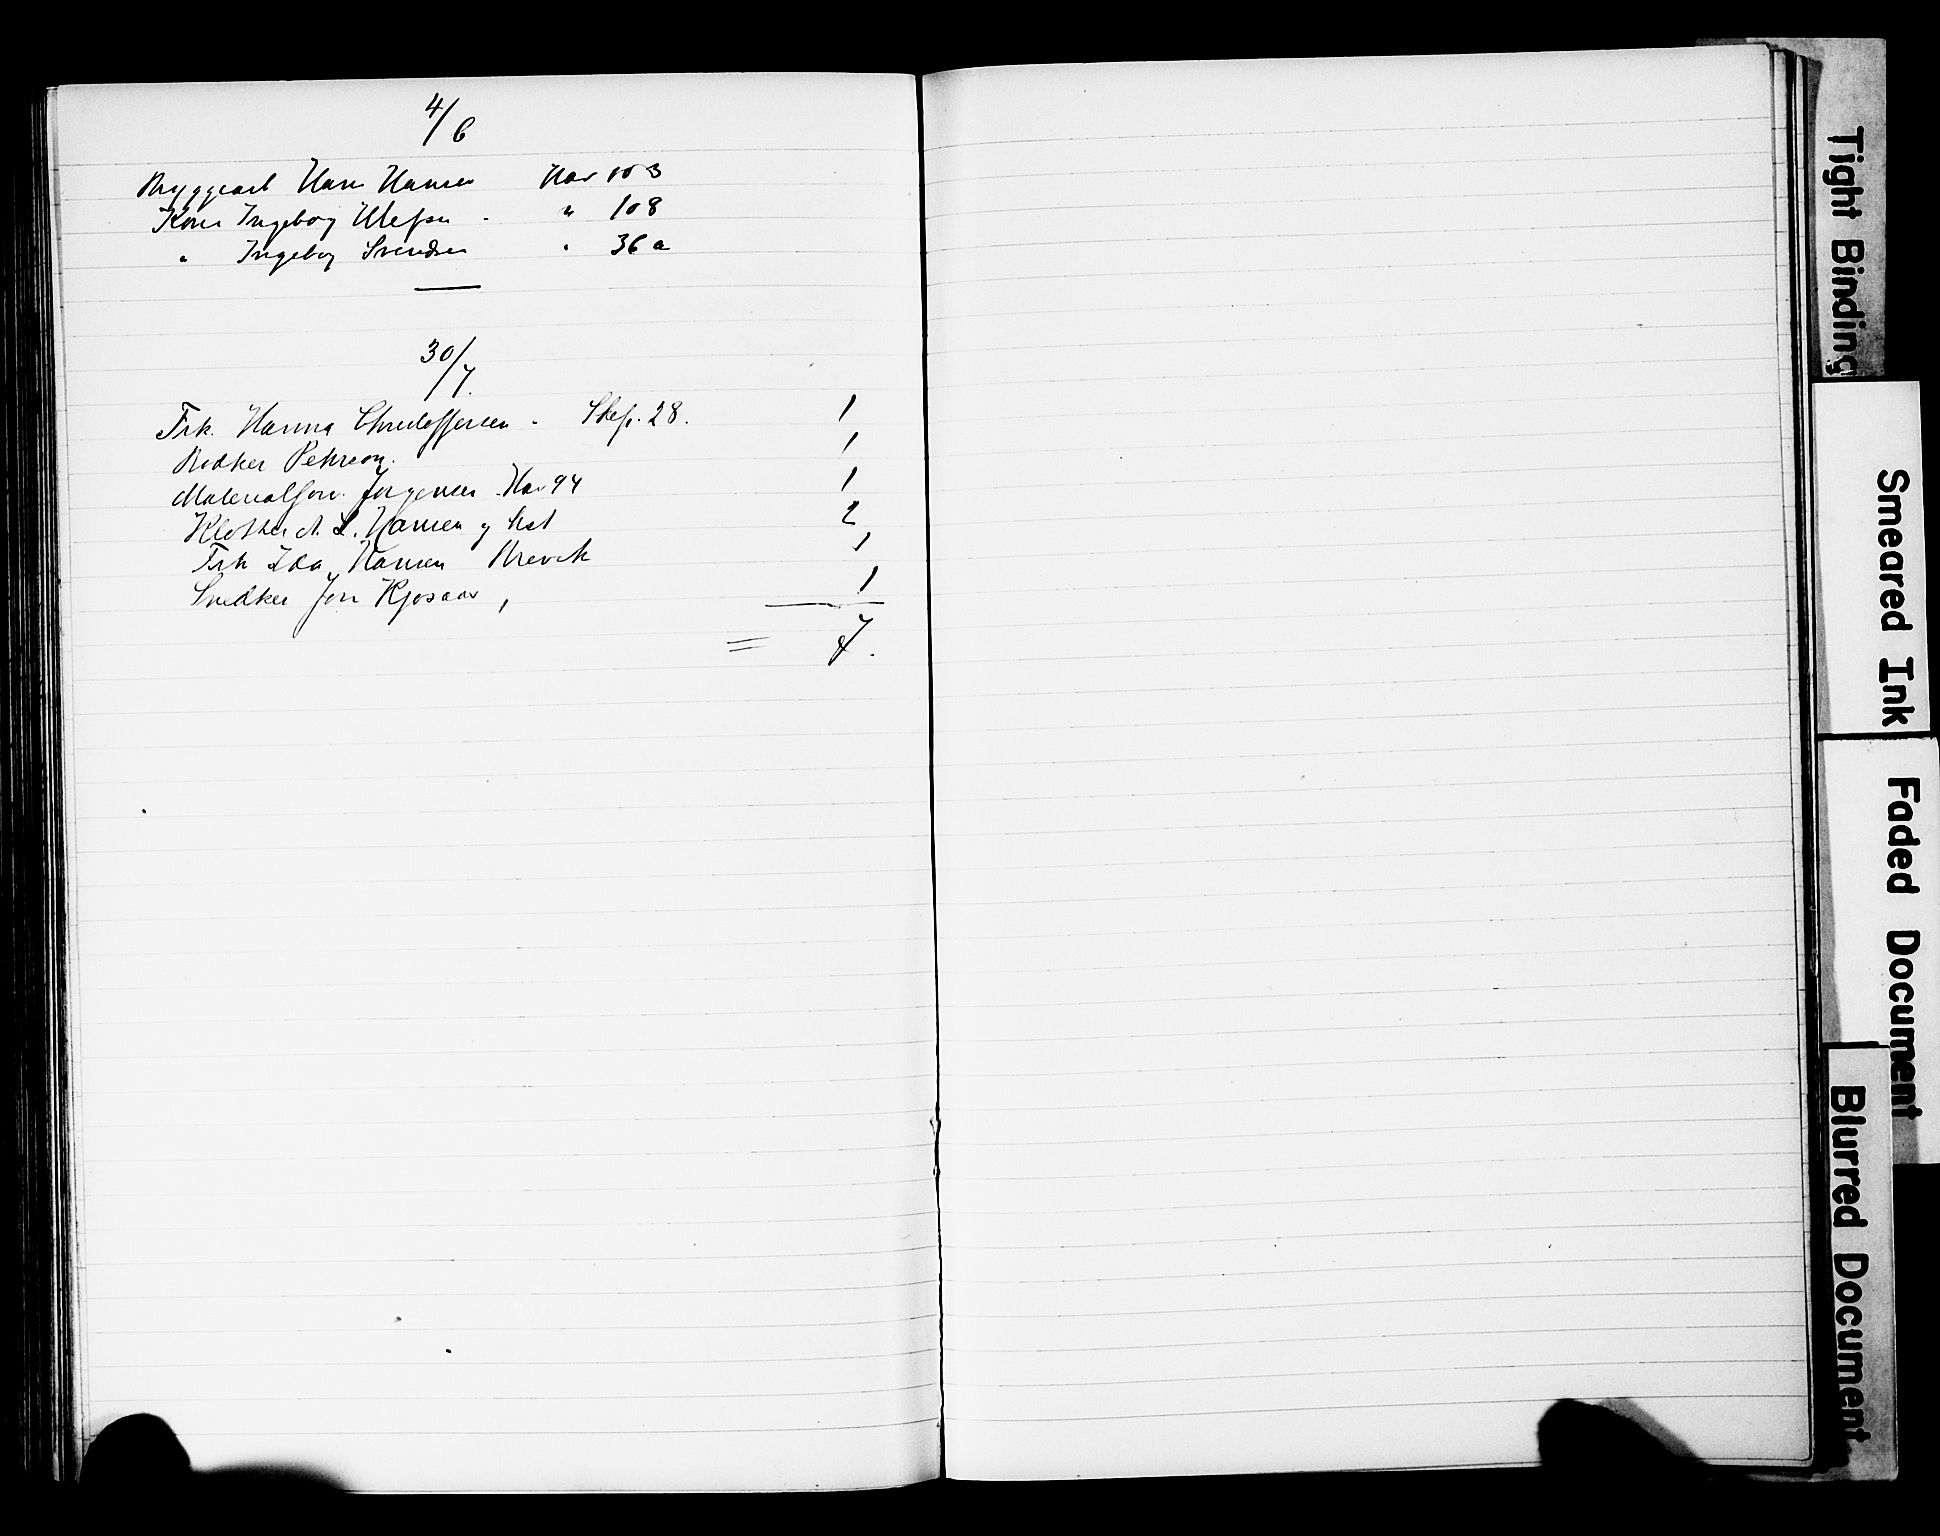 4/6
Bryggearb Hans Hansen Hav 103
Kone Ingeborg Ulefsen - " 108
" Ingeborg Svendsen " 36 a
30/7.
Frk. Hanna Christoffersen - Skip. 28. 1
Bødker Petterson. 1
Materialforv. Jørgensen Hav 94 1
L. Hansen og 2
Frk Ida Hansen Brevik 1
Snedker Jon Kjosaas, 1
= 7.
Tight Binding
Smeared Ink
Faded Document
Blurred Document